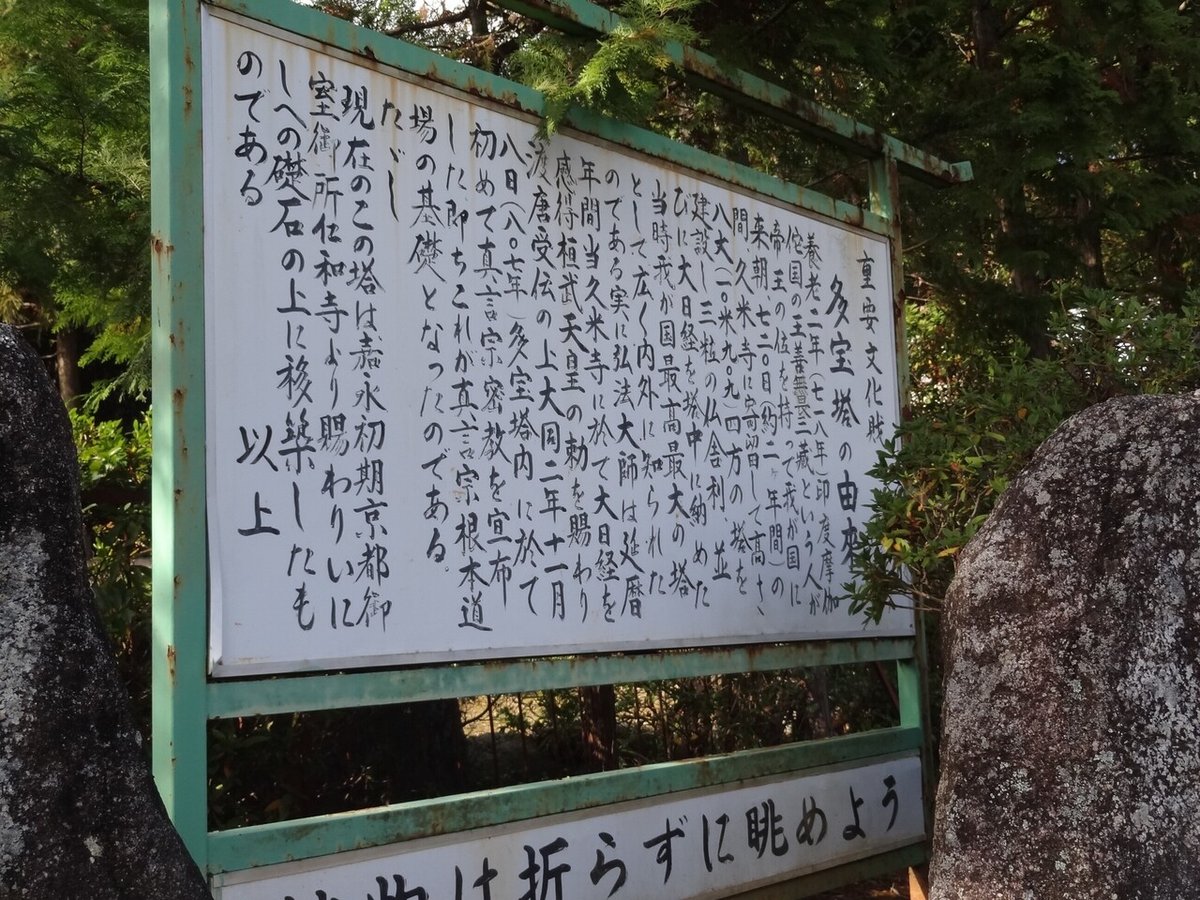 重要文化財
多宝塔の由来
養老二年(七一八年)印度摩伽
佗国の王善無畏三蔵という人が
帝王の位を持って我が国に
来朝、七二〇日(約二ヶ年間)の
間久米寺に寄留して高さ
八大(二〇米九〇九)四方の塔を
建設し三粒の仏舎利、並
びに大日経を塔中に納めた
当時我が国最高最大の塔
として広く内外に知られた
のである実に弘法大師は延暦
年間当久米寺に於て大日経を
感得桓武天皇の勅を賜わり
渡唐受伝の上大同二年十一月
八日(八〇七年)多宝塔内に於て
初めて真言宗密教を宣布
した即ちこれが真言宗根本道
場の基礎となったのである。
ただし
現在のこの塔は嘉永初期京都御
室御所仁和寺より賜わりいに
しへの礎石の上に移築したも
のである
以上
物は折らずに眺めよう